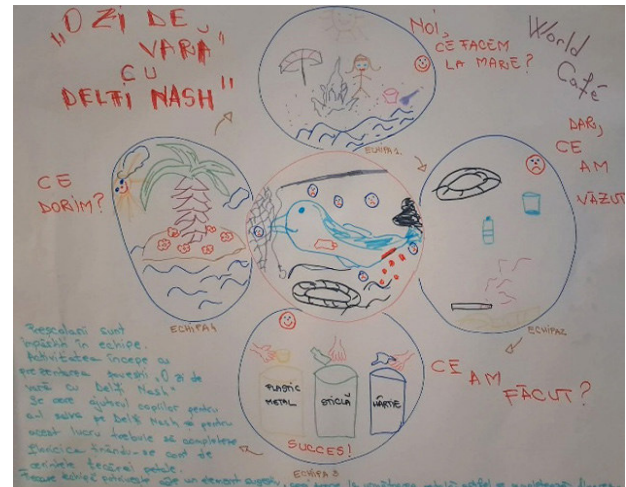 "O ZI DE
VARĂ"
CU
DELFI NASH"
NOI,
CE FACEM
LA MARE?
World
Café
ECHIPA 1
DAR,
CE
AM
VĂZUT
ECHIPA 2
CE
DORIM?
ECHIPA 4
CE AM
FĂCUT?
PLASTIC
METAL
STICLĂ
HÂRTIE
SUCCES!
ECHIPA 3
Preșcolarii sunt
împărțiți în echipe.
Activitatea începe cu
prezentarea poveștii "O zi de
vară cu Delfi Nash"
Se cere ajutorul copiilor pentru
a-l salva pe Delfi Nash și pentru
acest lucru trebuie să completeze
ținându-se cont de
cerințele fiecărei petale.
Fiecare echipă potrivește câte un element